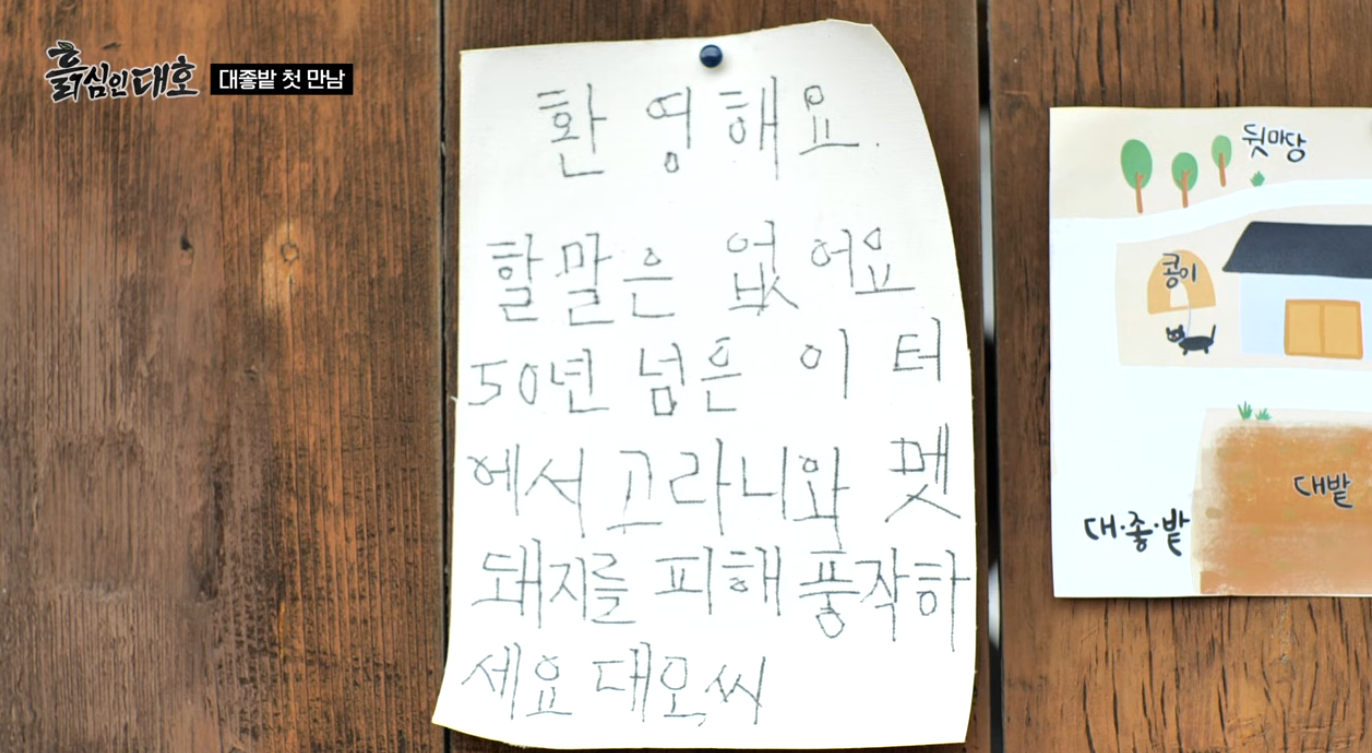 흙심인대호
대좋밭 첫 만남
환영해요.
할말은 없어요
50년 넘은 이 터
에서 고라니와 멧
돼지를 피해 풍작하
세요 대오씨
뒷마당
콩이
대밭
대·좋·밭